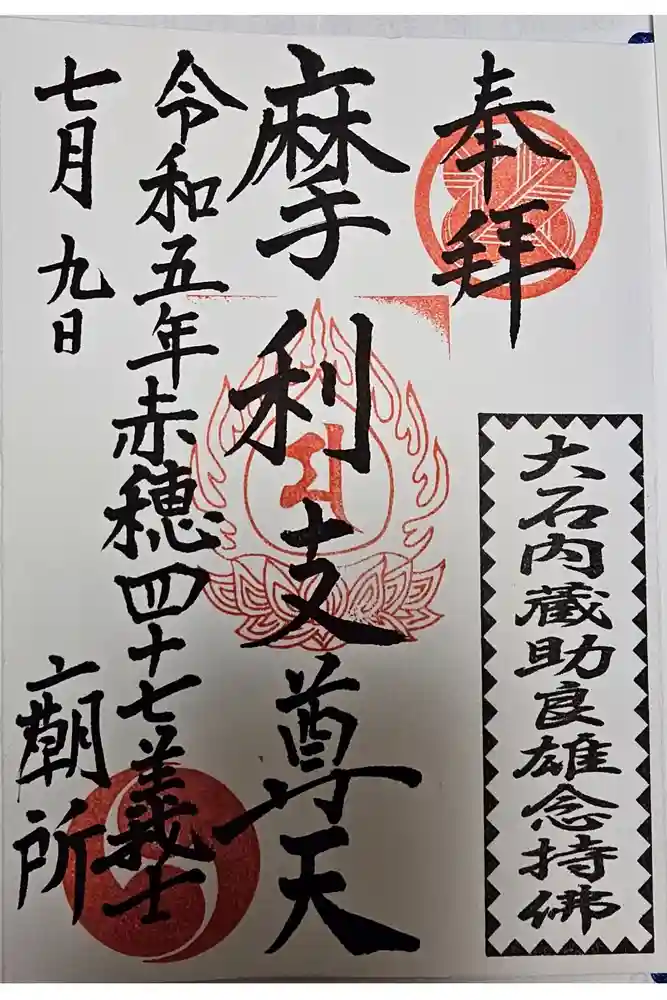 奉拝
大石内蔵助良雄念持佛
摩利支尊天
令和五年赤穂四十七義士
廟所
七月九日